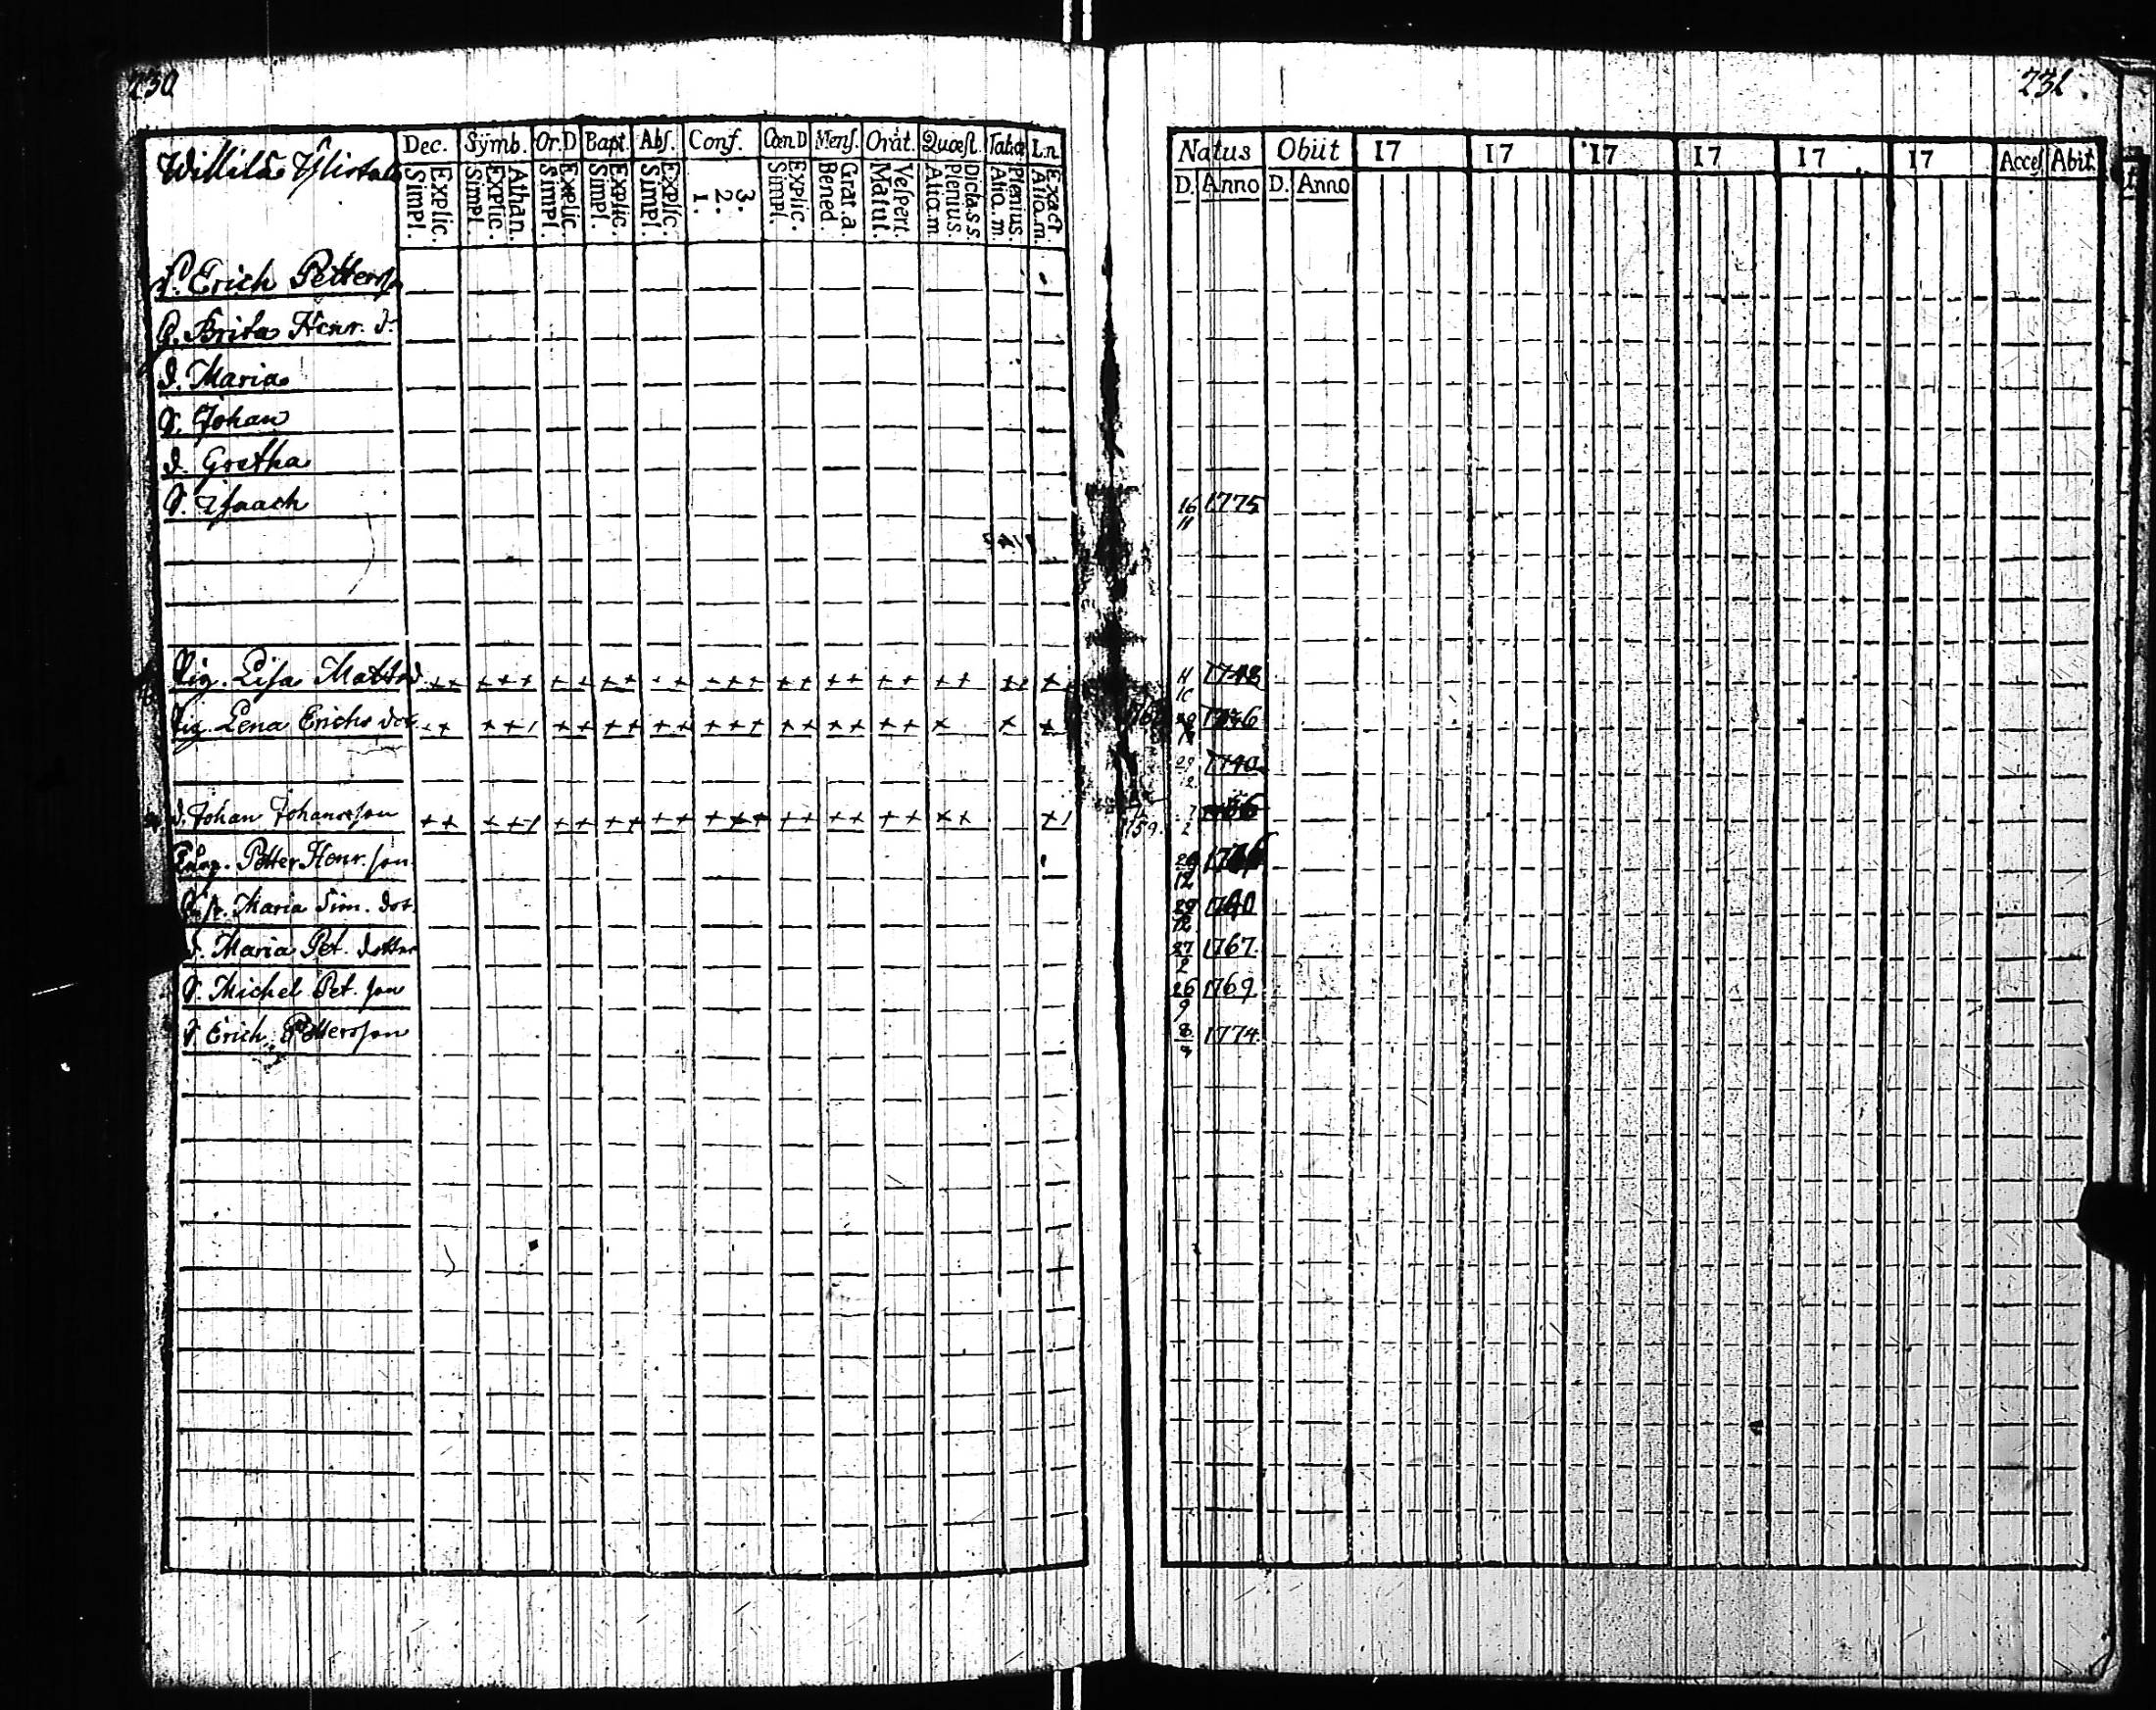 230
Dec. Symb. Or.D Bapt. Abs. Conf. Cœn D Mens. Orat. Quœst. Tab.œ L.n
Explic. Simpl. Athan. Explic. Simpl. Explic. Simpl. Explic. Simpl. Explic. Simpl. 3. 2. 1. Explic. Simpl. Grat.a. Bened. Vesperi. Matut. Dicta.s.s. Plenius. Aliq.m. Plenius. Aliq.m. Exact Aliq.m.
Erich Pettersson
Brita Henr. d:
d. Maria
S. Johan
d. Gretha
S. Isaach
Pig. Lisa Matts d
Pig. Lena Erichs dot.
d. Johan Johansson
Petter Henr. son
Maria Sim. dot.
d. Maria Pet. dotter
S. Michel Pet. son
S. Erich Pettersson
231
Natus Obiit 17 17 17 17 17 17 Acces Abit.
D. Anno D. Anno
16 1775
11
11 1748
10
29 1740
2
7
2
1759
12
29 1740
12
27 1767.
2
26 1769.
9
8 1774.